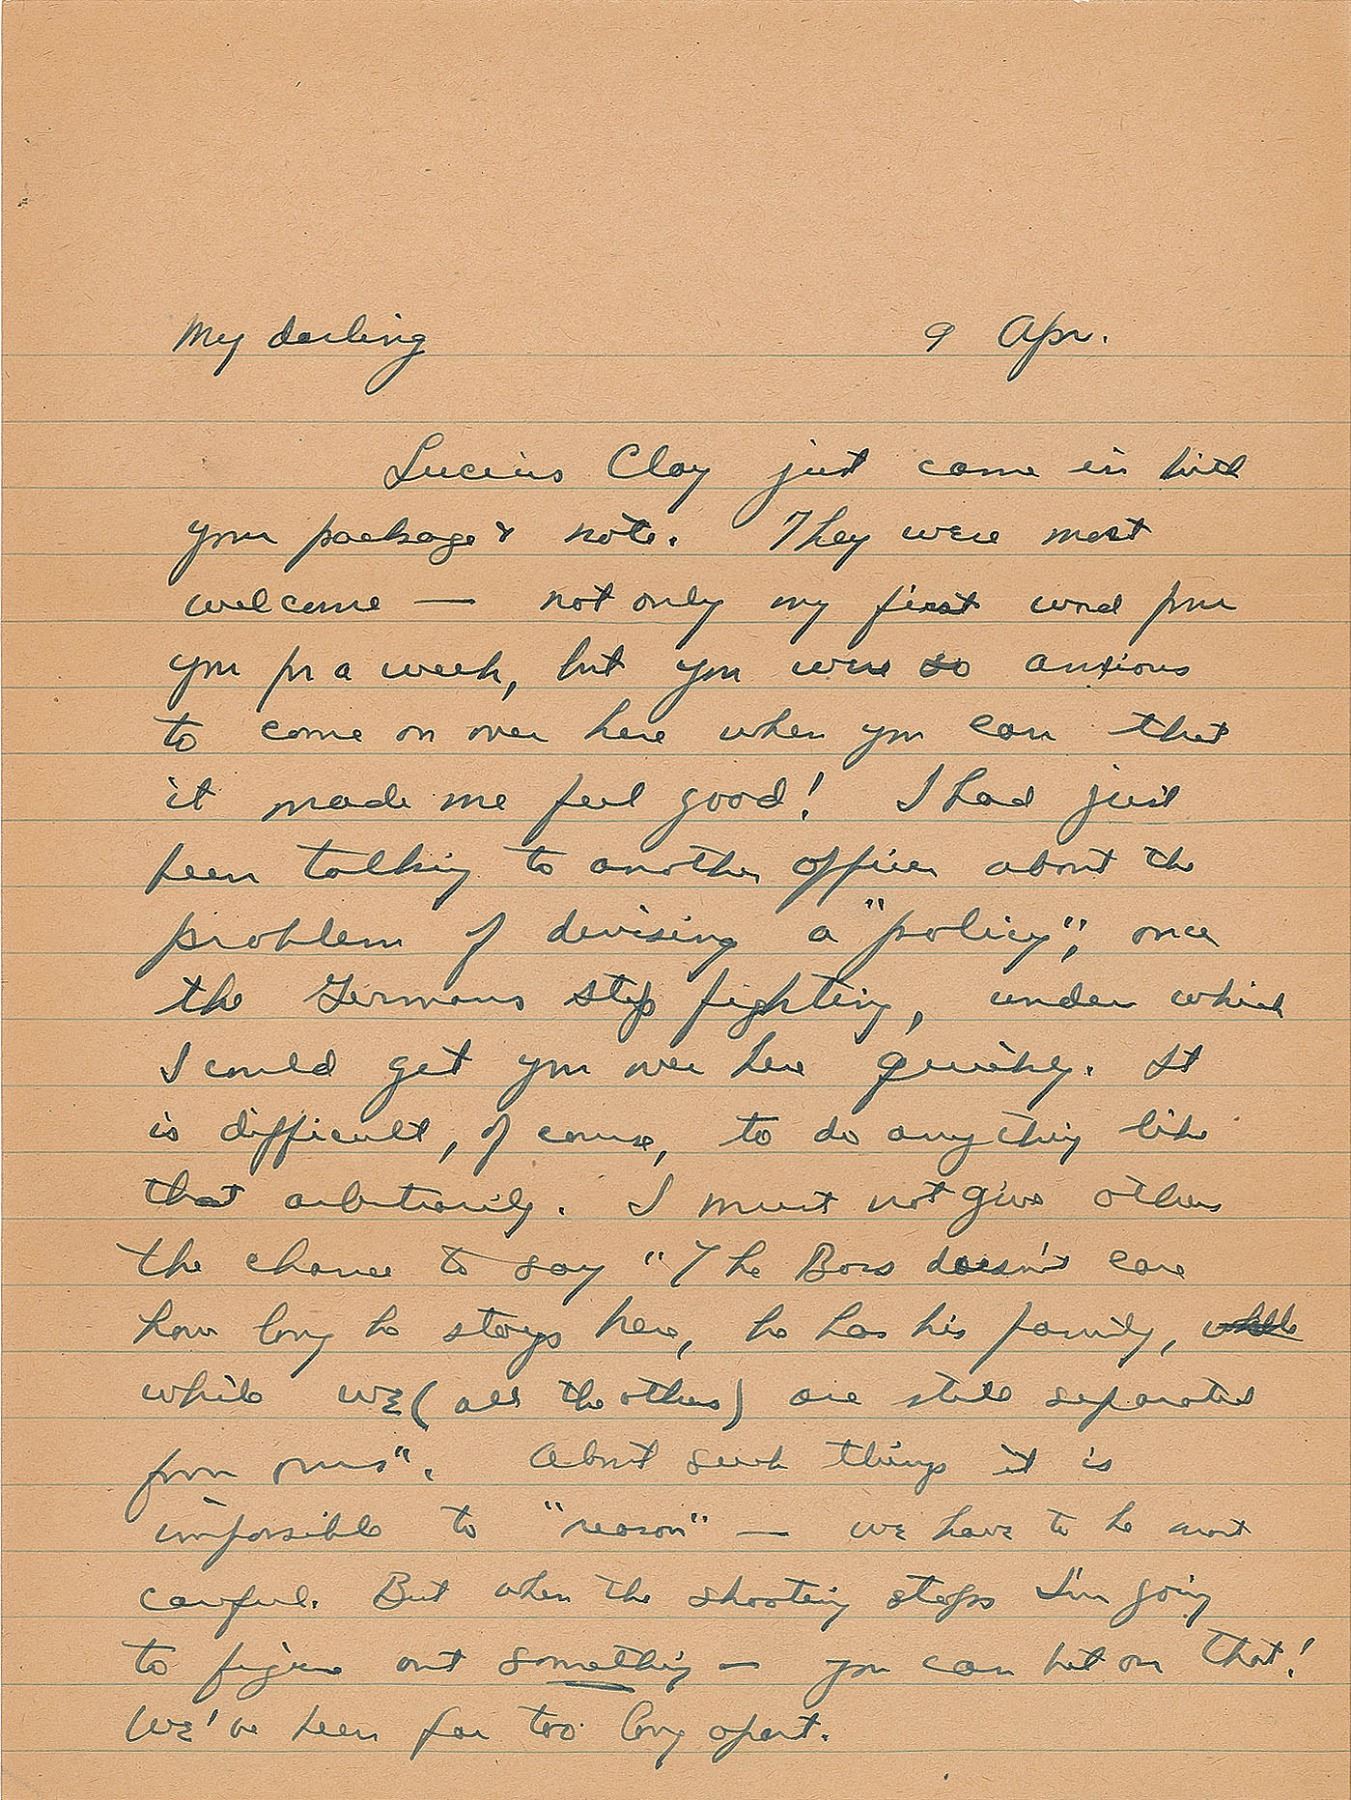 My darling 9 Apr.
Lucius Clay just came in with
your package & note. They were most
welcome — not only my first word from
you for a week, but you were so anxious
to come on over here when you can that
it made me feel good! I had just
been talking to another officer about the
problem of devising a "policy", once
the Germans stop fighting, under which
I could get you over here quickly. It
is difficult, of course, to do anything like
that arbitrarily. I must not give others
the chance to say "The Boss doesn't care
how long he stays here, he has his family,
while we (all the others) are still separated
from ours". About such things it is
impossible to "reason" — we have to be most
careful. But when the shooting stops I'm going
to figure out something — you can bet on that!
We've been far too long apart.